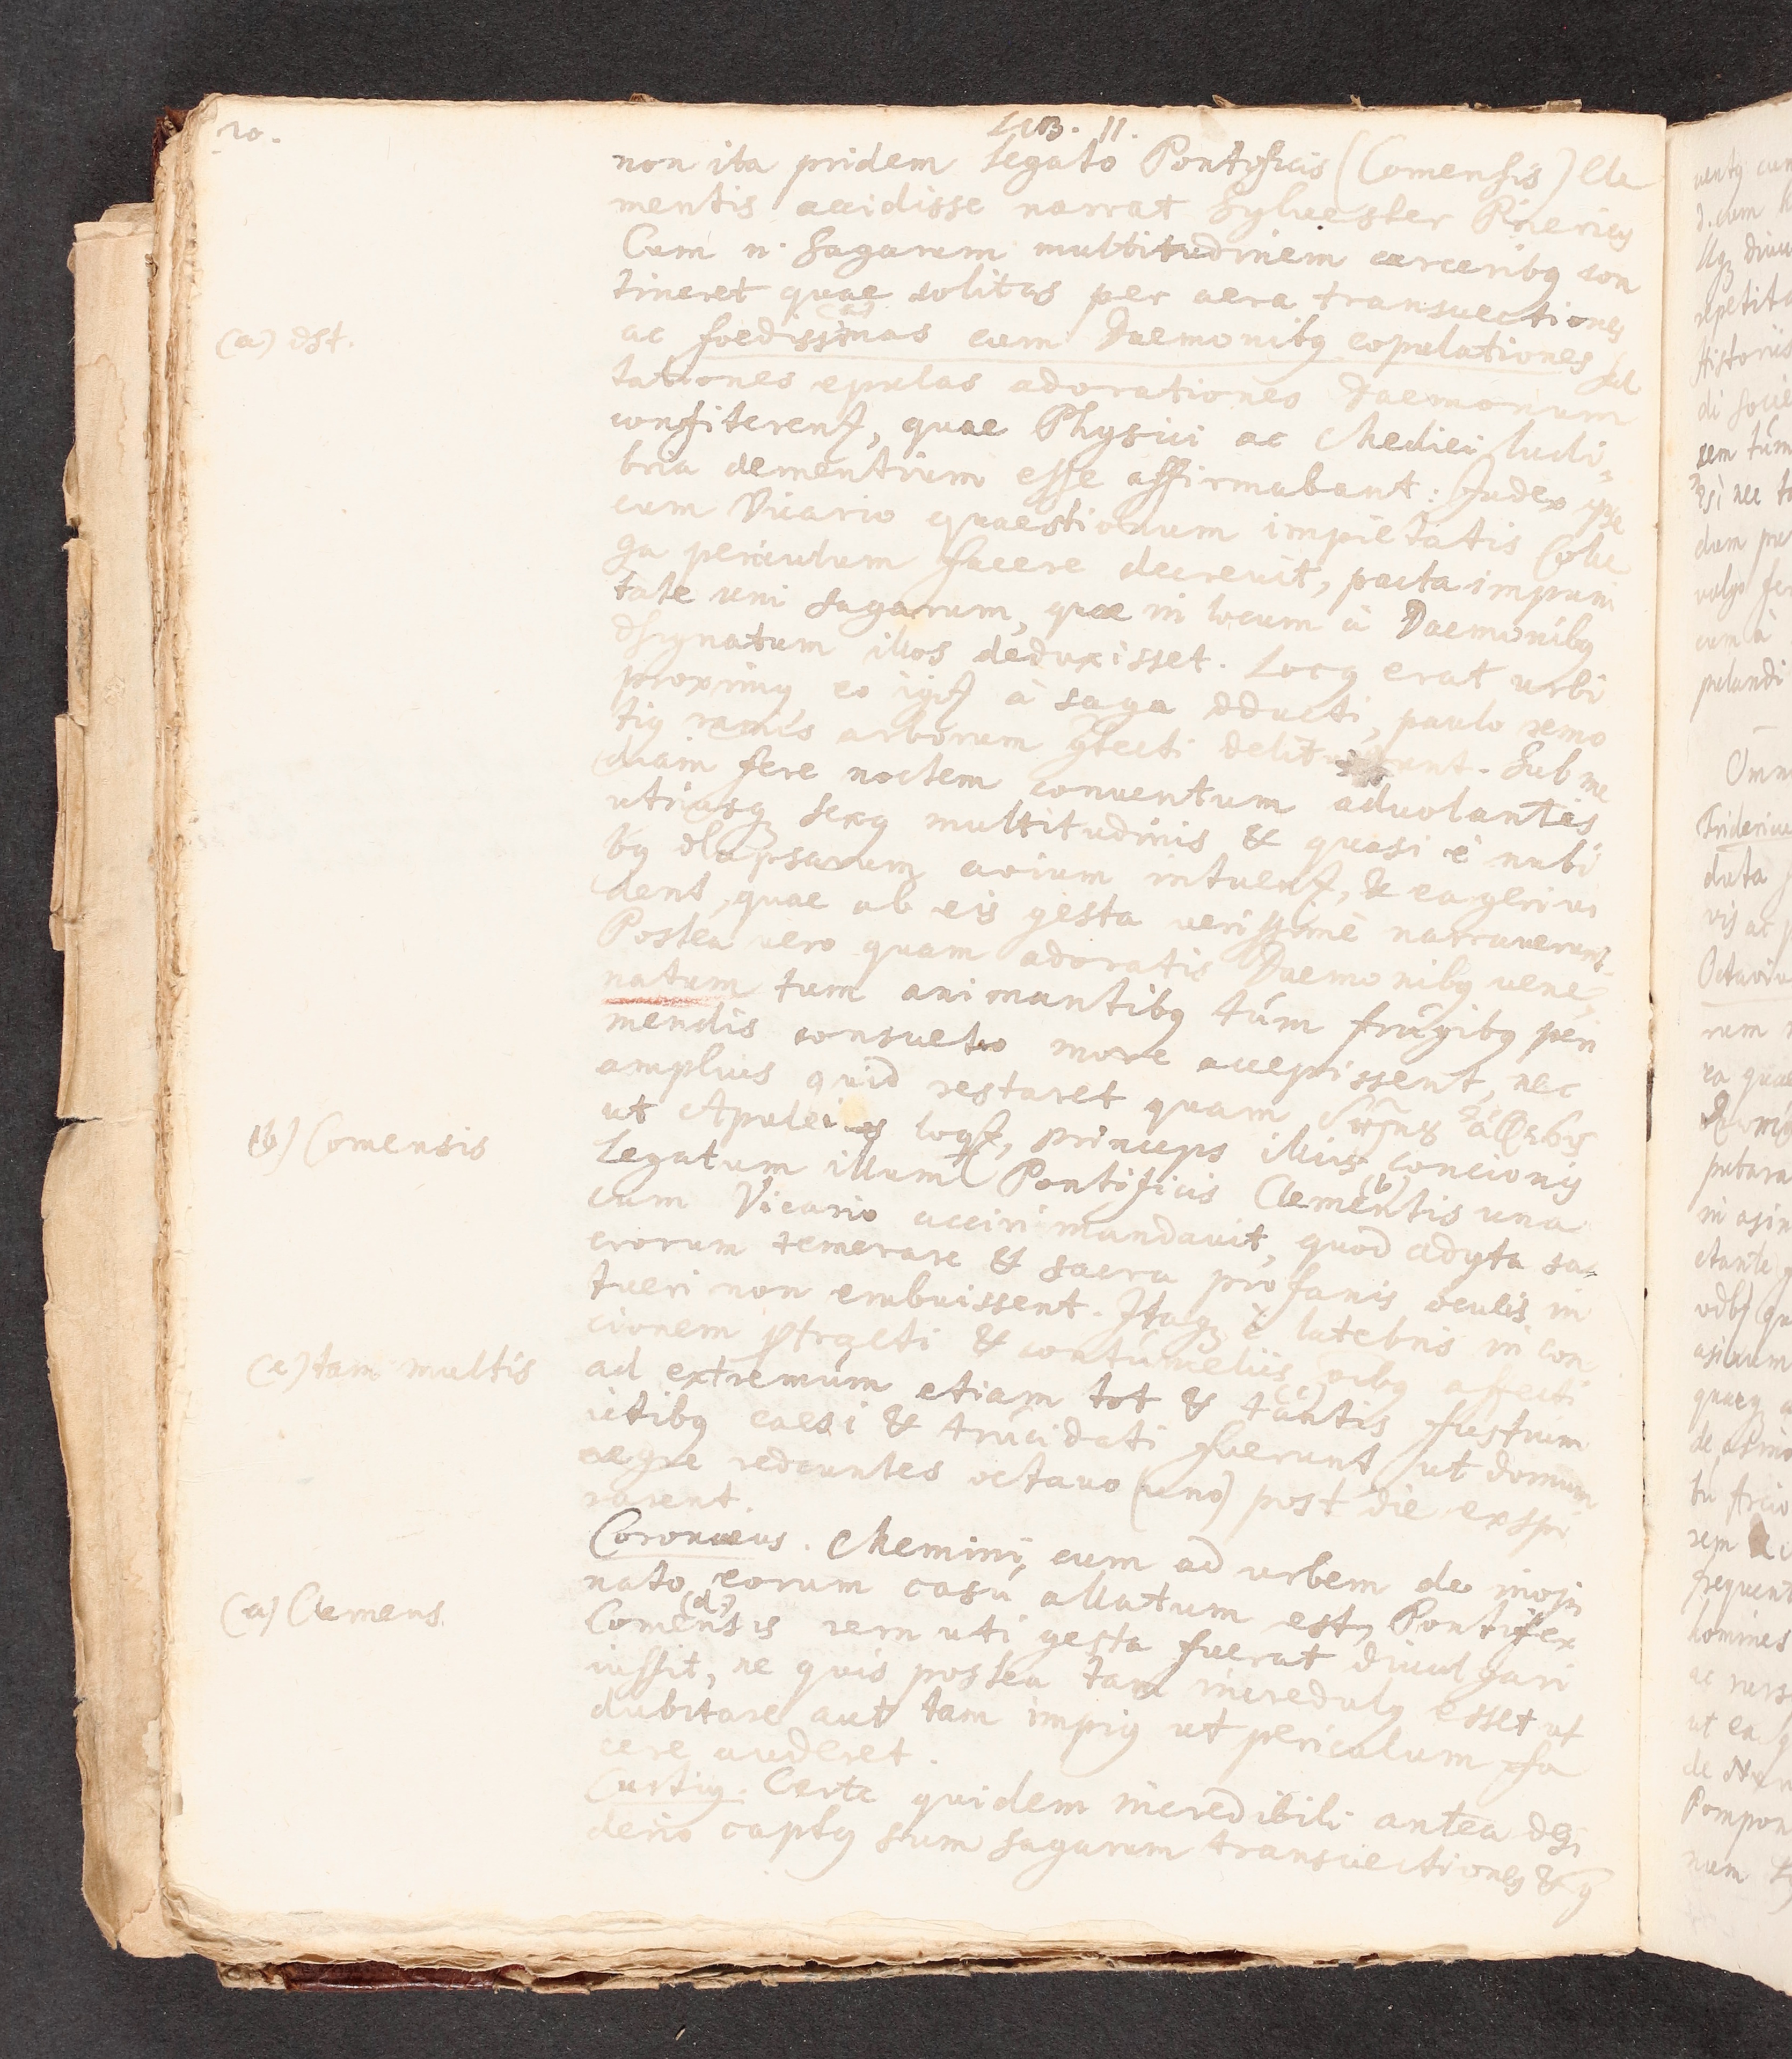 20.
LIB. II.
non ita pridem Legato Pontificis (Comensis) Cle
mentis accidisse narrat Sylvester Prierius
Cum n. Sagarum multitudinem carceribꝯ con
tineret quae solitas per aera transuectiones
(a) dst.
ac foedissimas (a) cum Daemonibꝯ copulationes sal
tationes epulas adorationes Daemonum
confiterentꝭ, quae Physici ac Medici ludi-
bria dementium esse affirmabant: Judex ipse
cum Vicario quaestionum impietatis
ga periculum facere decrevit, pacta impuni
tate uni sagarum, quae in locum à Daemonibꝯ
dsignatum illos deduxisset. Locꝯ erat urbi
proximꝯ eo igꝭ à saga dducti, paulo remo
tiꝯ ramis arborum ꝯtecti delit unt. Sub me
diam fere noctem conuentum aduolantis
utriusqꝫ sexꝯ multitudinis & quasi è nubi
bꝯ dlapsarum avium intuentꝭ, & ea geri vi
dent, quae ab eis gesta verissimè narrauerunt.
Postea vero quam adoratis Daemonibꝯ vene-
natum tum animantibꝯ tùm frugibꝯ peri
mendis consueto more accepissent, nec
amplius quid restaret quam
ut Apuleius loqꝭ, princeps illius concionis
(b) Comensis
Legatum illum Pontificis Clementis (b) una
cum Vicario acciri mandauit, quod adyta sa-
crorum temerare & sacra profanis oculis in
tueri non erubuissent. Itaqꝫ è latebris in con
cionem ptracti & contumeliis oibꝯ affecti
(c) tam multis
ad extremùm etiam tot & tantis (c) fustium
ictibꝯ caesi & trucidati fuerunt ut domum
aegre redeuntes octauo (uno) post die exspi
rarent.
Coronaeus. Memini, cum ad urbem de inopi
nato eorum casu allatum est, Pontifex
(d) Clemens.
Comensis (d) rem uti gesta fuerat diuulgari
iussit, ne quis postea tam incredulꝯ esset ut
dubitare aut tam impiꝯ ut periculum fa
cere auderet.
Curtiꝯ. Certe quidem incredibili antea desi
derio captꝯ sum sagarum transuectiones &